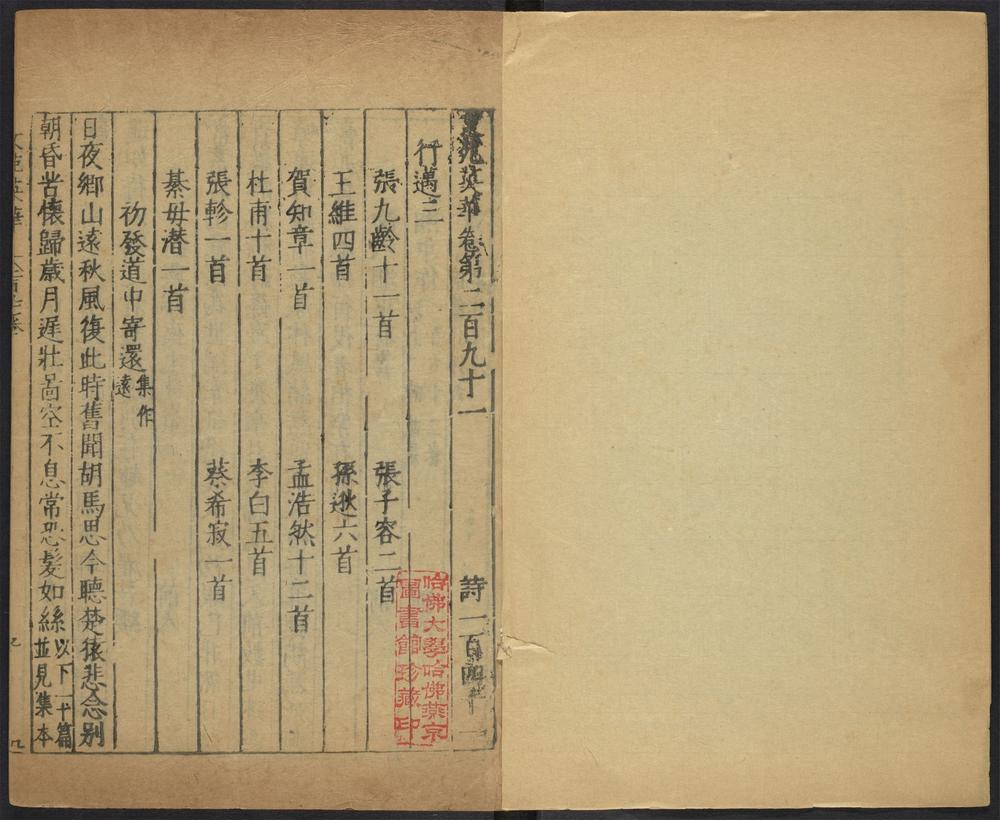 文苑英華卷第二百九十一 詩一百四十一
行邁三
張九齡十一首 張子容二首
王維四首 孫逖六首
賀知章一首 孟浩然十二首
杜甫十首 李白五首
張軫一首 蔡希寂一首
綦毋潜一首
初發道中寄還集作遠
日夜鄉山遠秋風復此時舊聞胡馬思今聽楚猿悲念别
朝昏苦懷歸歲月遲壯啚空不息常恐髮如絲以下十篇並見集本
哈佛大學哈佛燕京
圖書館珍藏印